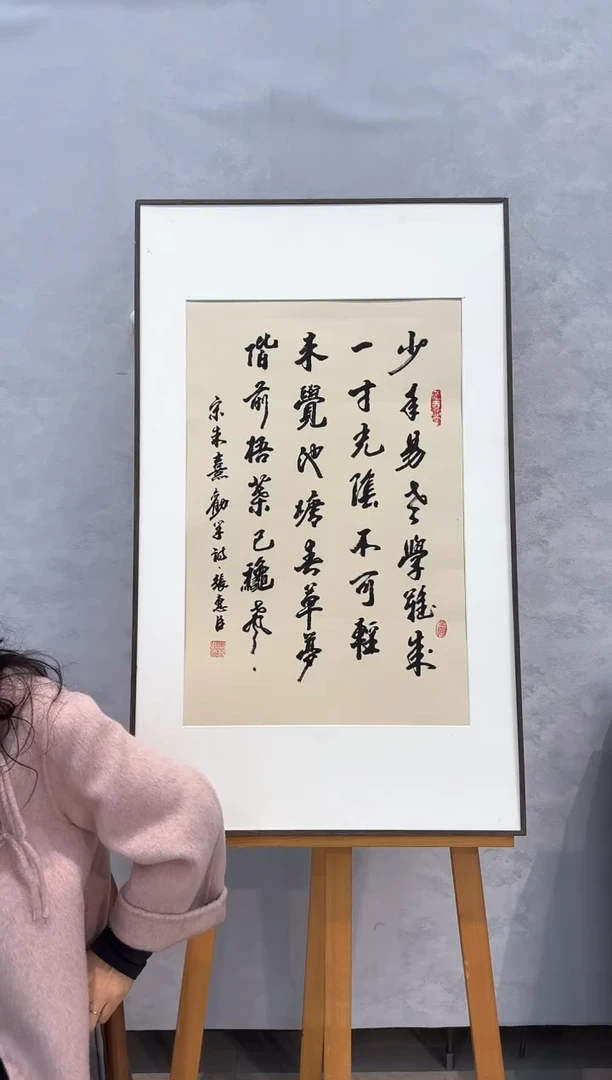 少年易老學難成
一寸光陰不可輕
未覺池塘春草夢
階前梧葉已穐聲
宋朱熹勸學詩、張惠臣